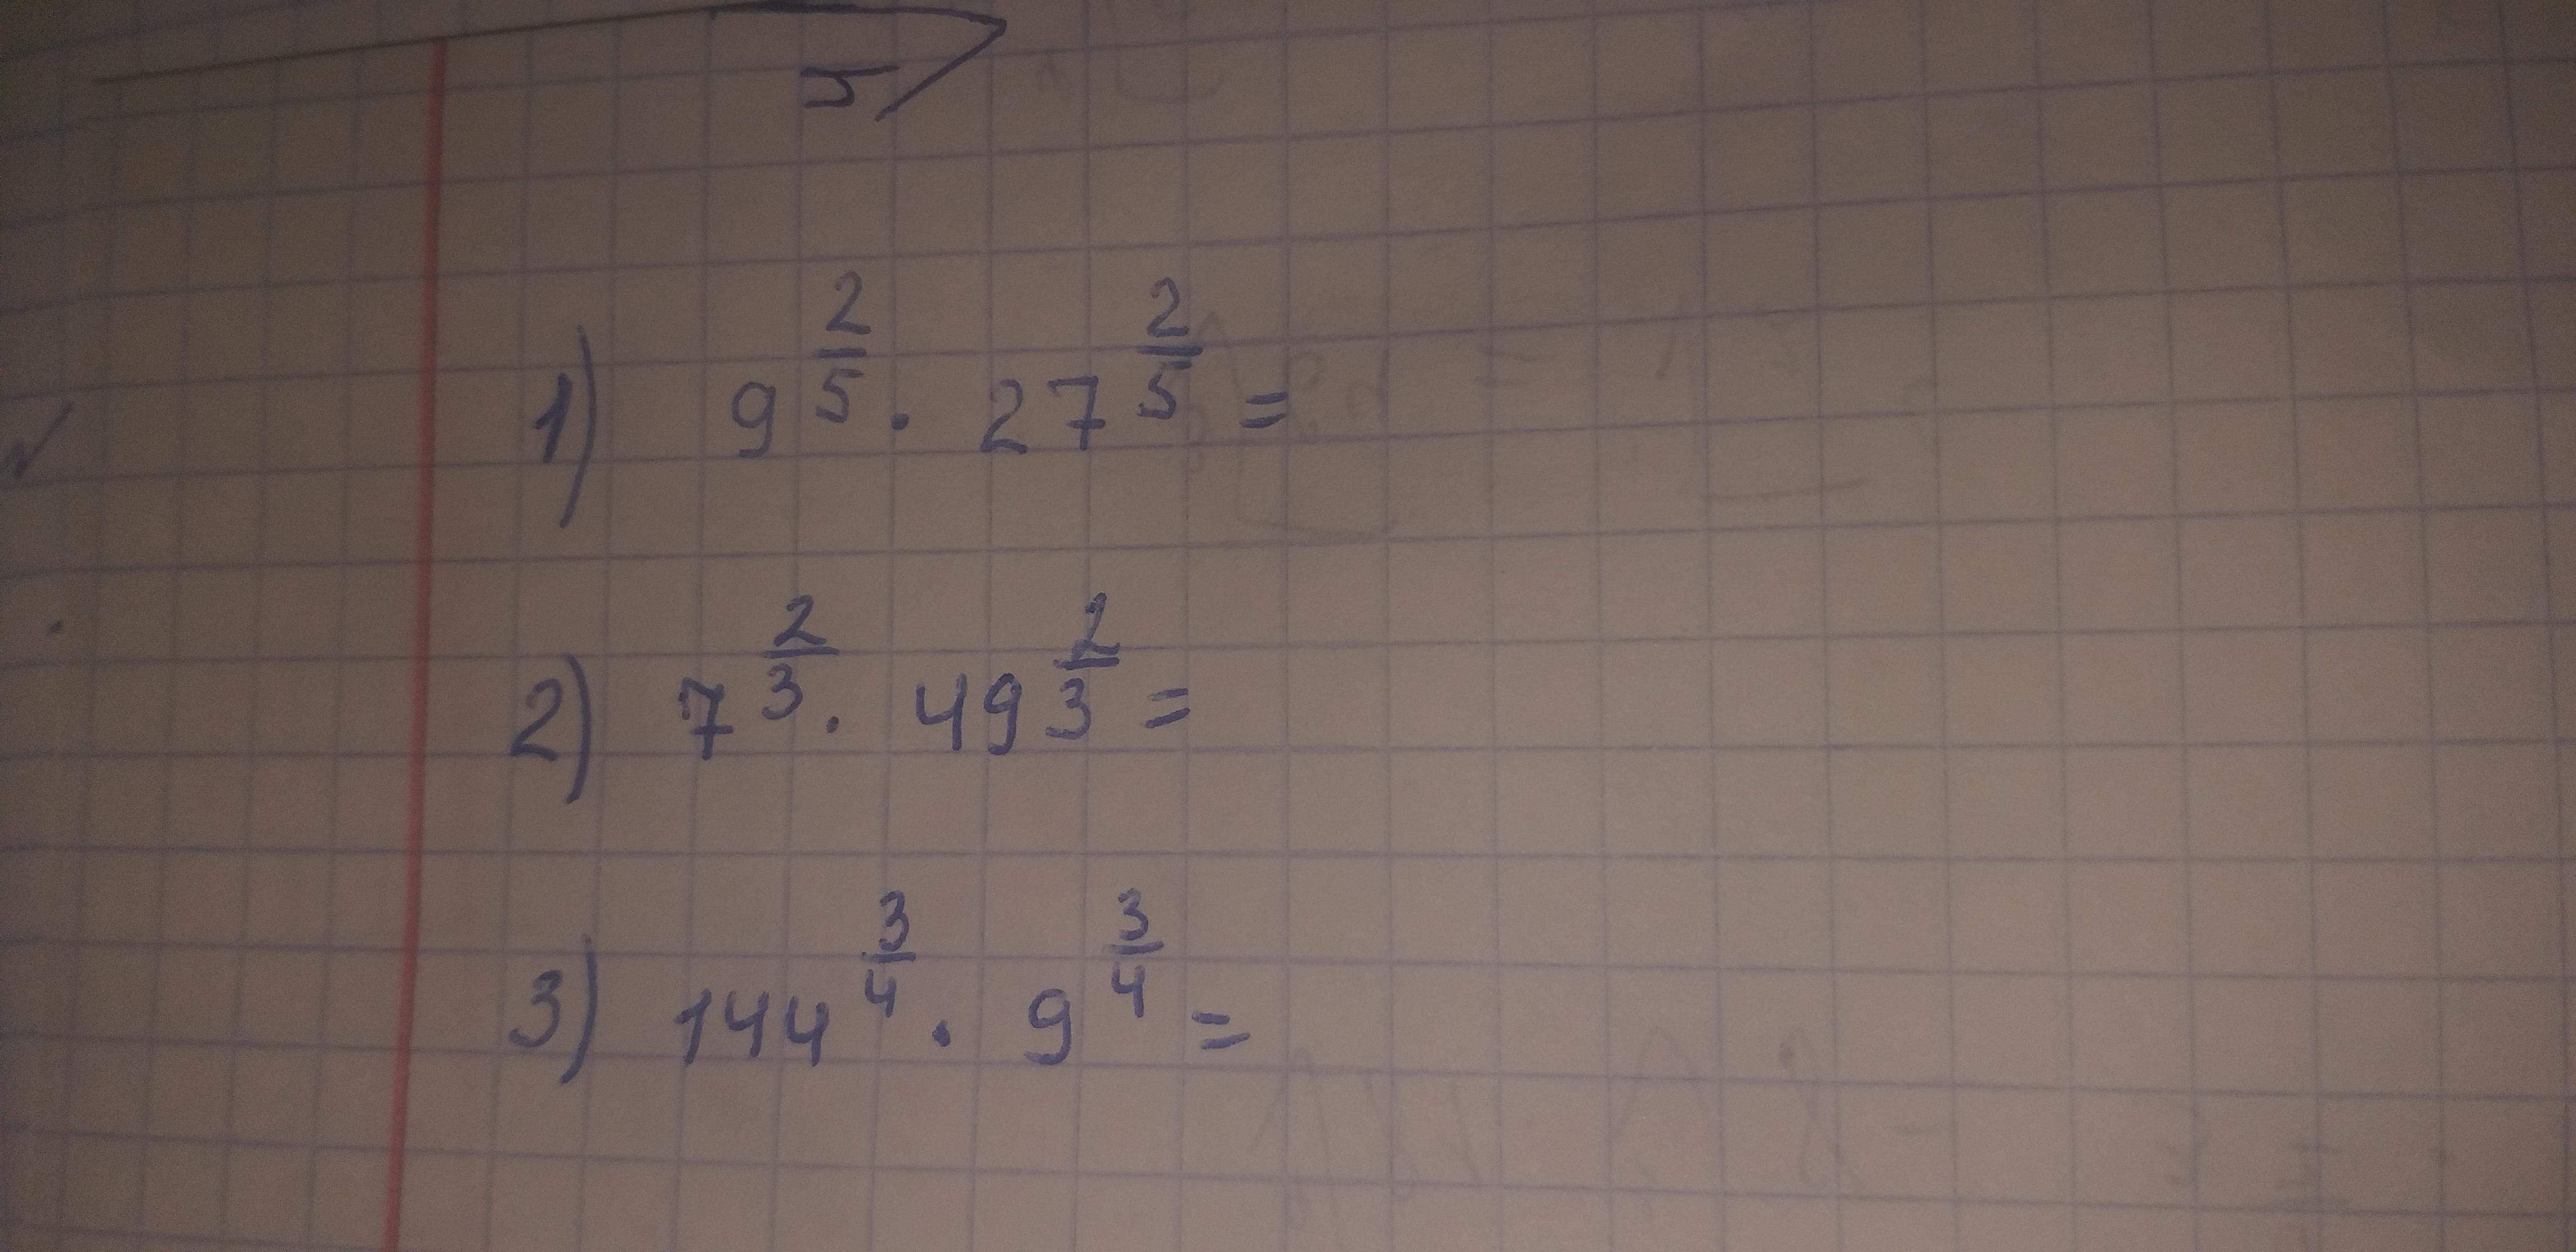 5
1) 9^{2/5} · 27^{2/5} =
2) 7^{2/3} · 49^{2/3} =
3) 144^{3/4} · 9^{3/4} =